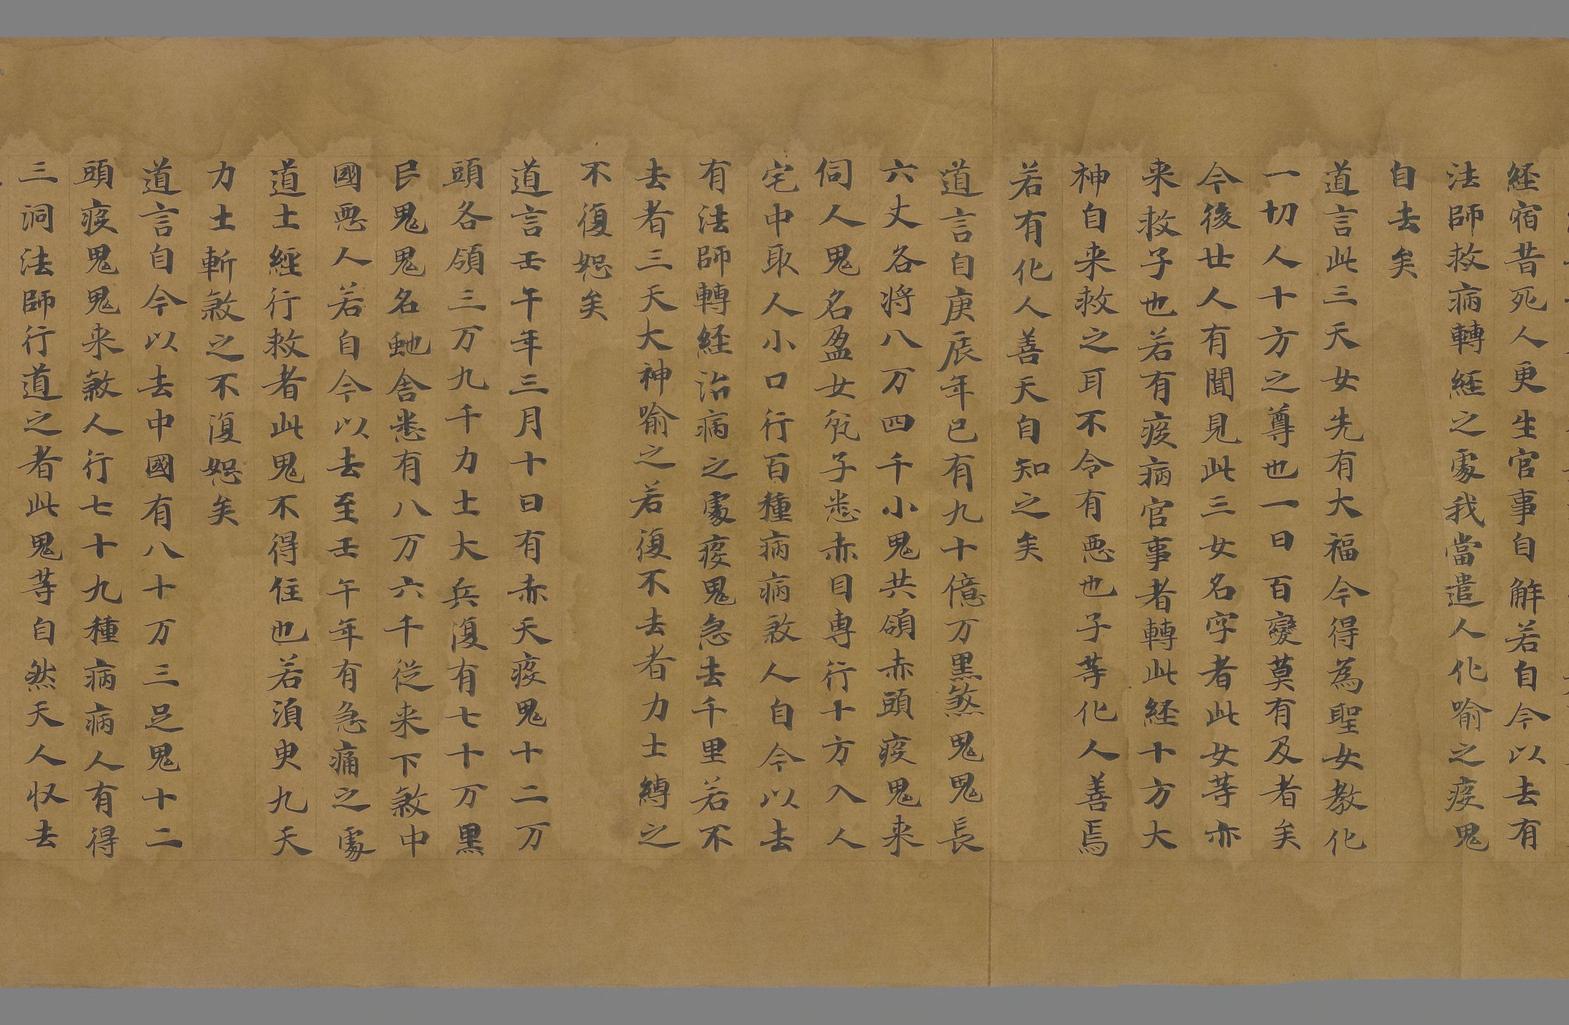 経宿昔死人更生官事自解若自今以去有
法師救病轉経之處我當遣人化喻之疫鬼
自去矣
道言此三天女先有大福今得為聖女教化
一切人十方之尊也一日百變莫有及者矣
今後世人有聞見此三女名字者此女等亦
来救子也若有疫病官事者轉此経十方大
神自来救之耳不令有惡也子等化人善焉
若有化人善天自知之矣
道言自庚辰年已有九十億万黒煞鬼鬼長
六丈各将八万四千小鬼共領赤頭疫鬼来
伺人鬼名盈女子悉赤目専行十方入人
宅中取人小口行百種病病煞人自今以去
有法師轉経治病之處疫鬼急去千里若不
去者三天大神喻之若復不去者力士縛之
不復恕矣
道言壬午年三月十日有赤天疫鬼十二万
頭各領三万九千力士大兵復有七十万黒
民鬼鬼名虵舍悉有八万六千従来下煞中
國悪人若自今以去至壬午年有急痛之處
道士經行救者此鬼不得住也若須臾九天
力士斬煞之不復恕矣
道言自今以去中國有八十万三足鬼十二
頭疫鬼鬼来煞人行七十九種病病人有得
三洞法師行道之者此鬼等自然天人収去